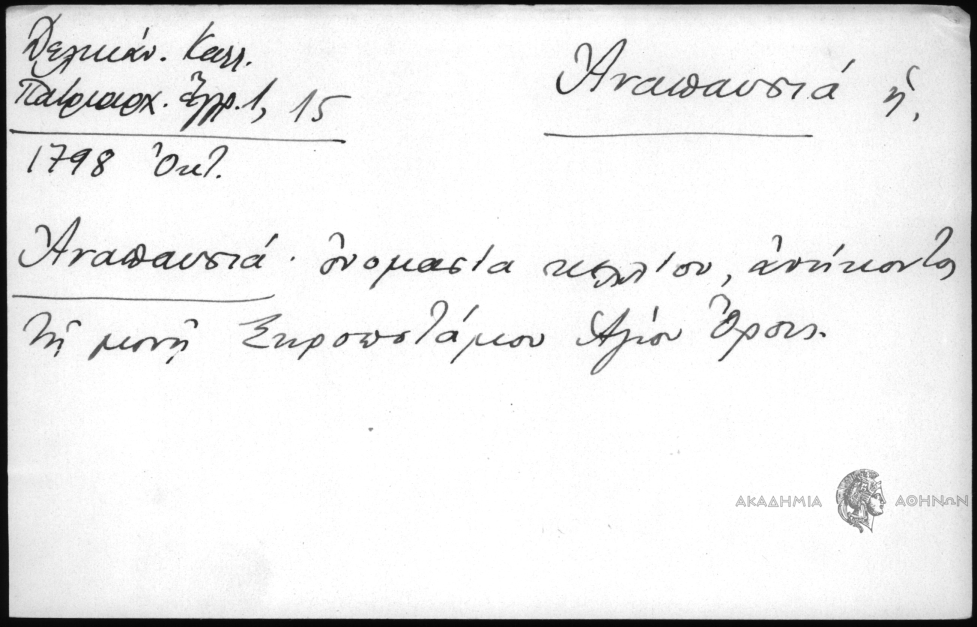 Δελικάν. Καλλ.
Πατριαρχ. Ἔγγρ. 1, 15
Ἀναπαυσιά ἡ,
1798 Ὀκτ.
Ἀναπαυσιά · ὀνομασία κελλίου, ἀνήκοντος
τῇ μονῇ Ξηροποτάμου Ἁγίου Ὄρους.
ΑΚΑΔΗΜΙΑ ΑΘΗΝΩΝ